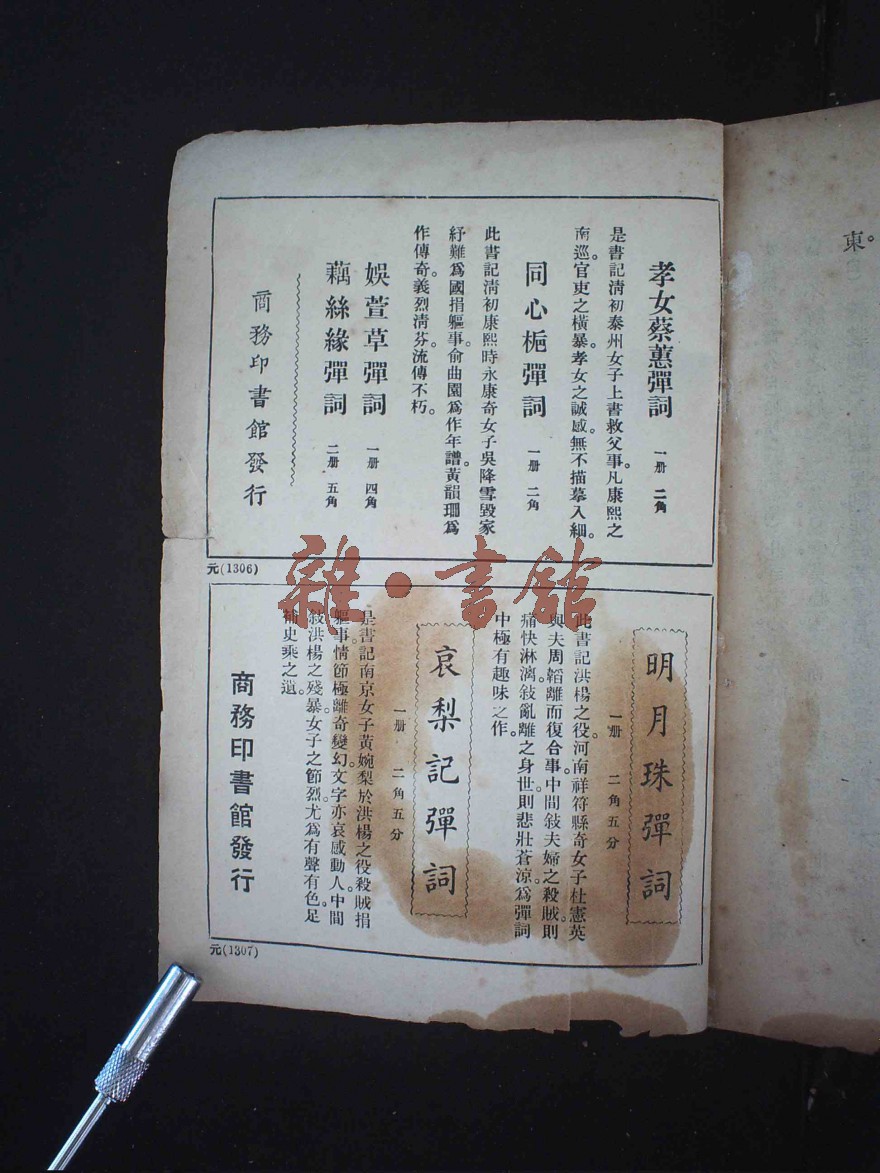 東。
孝女蔡蕙彈詞 一册 二角
是書記清初泰州女子上書救父事。凡康熙之
南巡。官吏之橫暴。孝女之誠感。無不描摹入細。
同心梔彈詞 一册 二角
此書記清初康熙時永康奇女子吳降雪毀家
紓難爲國捐軀事。俞曲園爲作年譜。黃韻珊爲
作傳奇。義烈清芬。流傳不朽。
娛萱草彈詞 一册 四角
藕絲緣彈詞 二册 五角
商務印書館發行
元(1306)
雜·書館
明月珠彈詞
一册 二角五分
此書記洪楊之役。河南祥符縣奇女子杜憲英
與夫周韜離而復合事。中間敍夫婦之殺賊。則
痛快淋漓。敍亂離之身世。則悲壯蒼凉。爲彈詞
中極有趣味之作。
哀梨記彈詞
一册 二角五分
是書記南京女子黃婉梨於洪楊之役殺賊捐
軀事。情節極離奇變幻。文字亦哀感動人。中間
敍洪楊之殘暴。女子之節烈。尤爲有聲有色。足
補史乘之遺。
商務印書館發行
元(1307)